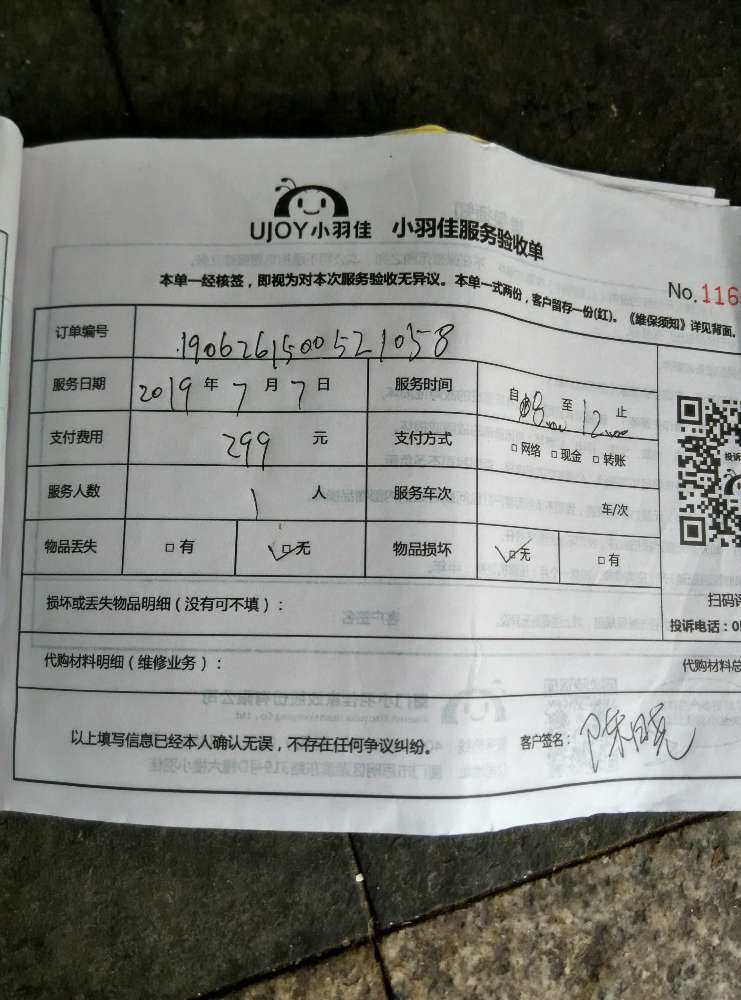 UJOY小羽佳 小羽佳服务验收单
本单一经核签，即视为对本次服务验收无异议。本单一式两份，客户留存一份(红)。《维保须知》详见背面。
No.116
订单编号 1906261500521058
服务日期 2019 年 7 月 7 日 服务时间 自 8 至 12 止
支付费用 299 元 支付方式 □网络 □现金 □转账
服务人数 1 人 服务车次 车/次
物品丢失 □有 ☑无 物品损坏 ☑无 □有
损坏或丢失物品明细（没有可不填）：
扫码评
投诉电话：05
代购材料明细（维修业务）：
代购材料总
以上填写信息已经本人确认无误，不存在任何争议纠纷。 客户签名：陈晓
投诉